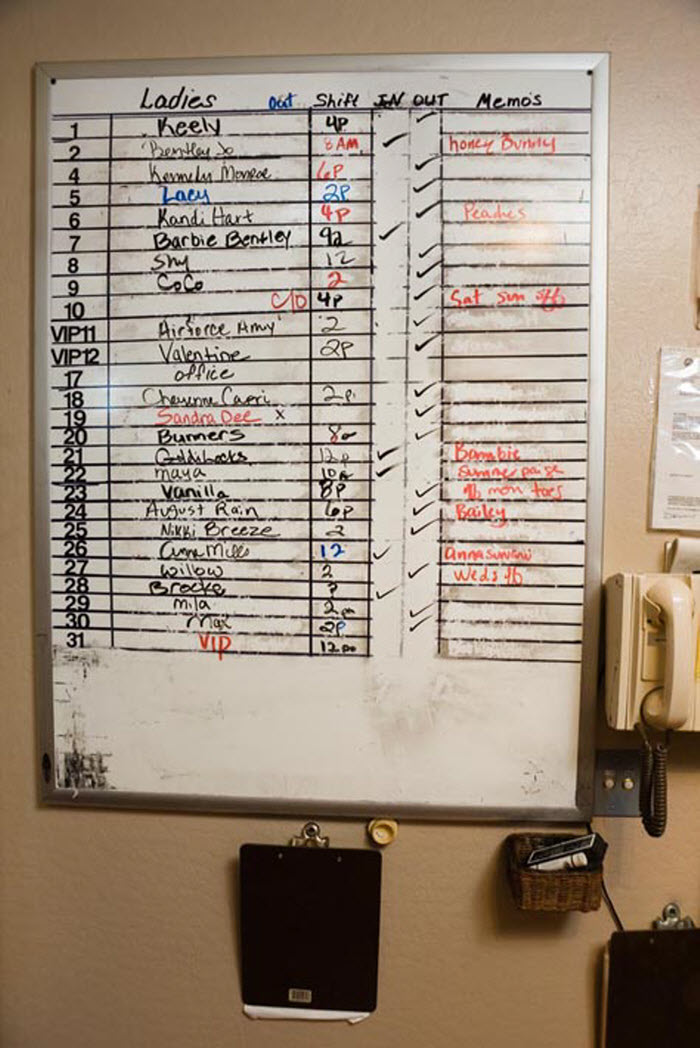 Ladies out Shift IN OUT Memo's
1 Keely 4P
2 Bentley Jo 8 AM honey Bunny
4 Kennedy Monroe 6P
5 Lacy 2P
6 Kandi Hart 4P Peaches
7 Barbie Bentley 9a
8 Shy 12
9 CoCo 2
10 C/O 4P Sat sun off
VIP11 Airforce Amy 2
VIP12 Valentine 2P
17 office
18 Cheyenne Capri 2P
19 Sandra Dee x
20 Bunners 8a
21 Goldilocks 12P Bambie
22 maya 10A summer paige
23 Vanilla 8P mon tues
24 August Rain 6P Bailey
25 Nikki Breeze 2
26 Anna Mills 12
27 Willow 2 Weds
28 Brooke ?
29 mila 2pm
30 Max 2P
31 VIP 12